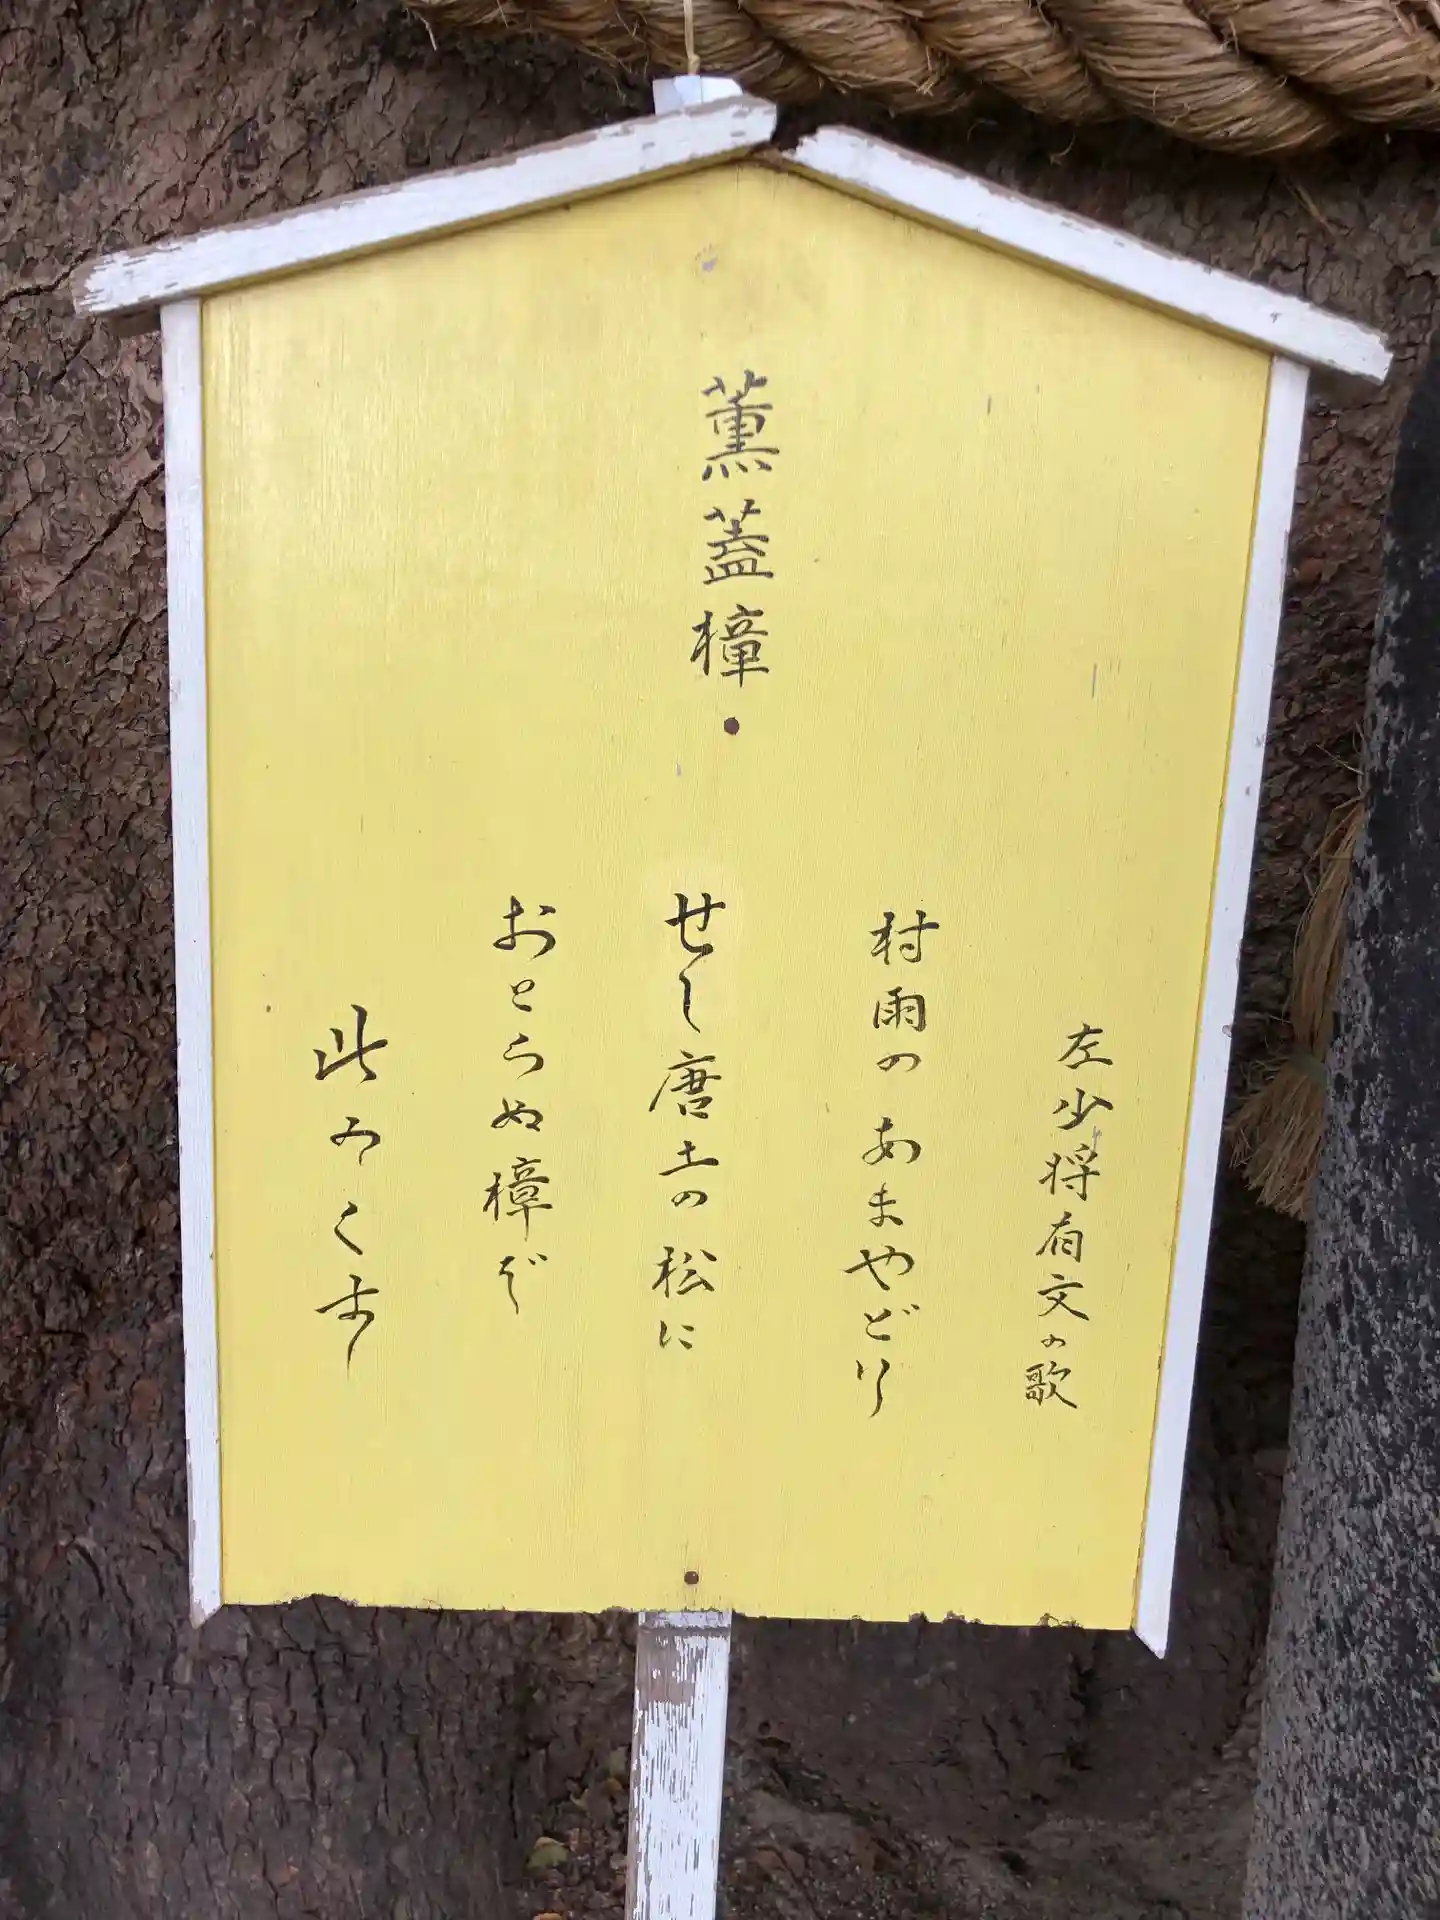 薫蓋樟
左少将有文の歌
村雨のあまやどり
せし唐土の松に
おとらぬ樟ぞ
此みくすし